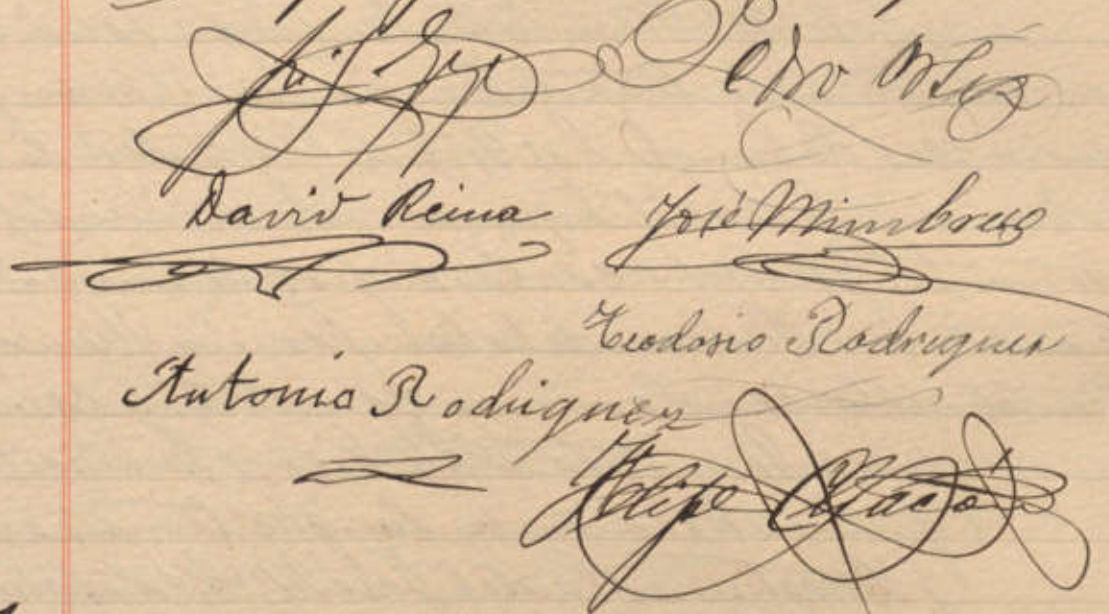 Pedro Ortiz
David Reina José Mimbrero
Teodosio Rodriguez
Antonio Rodriguez
Felipe